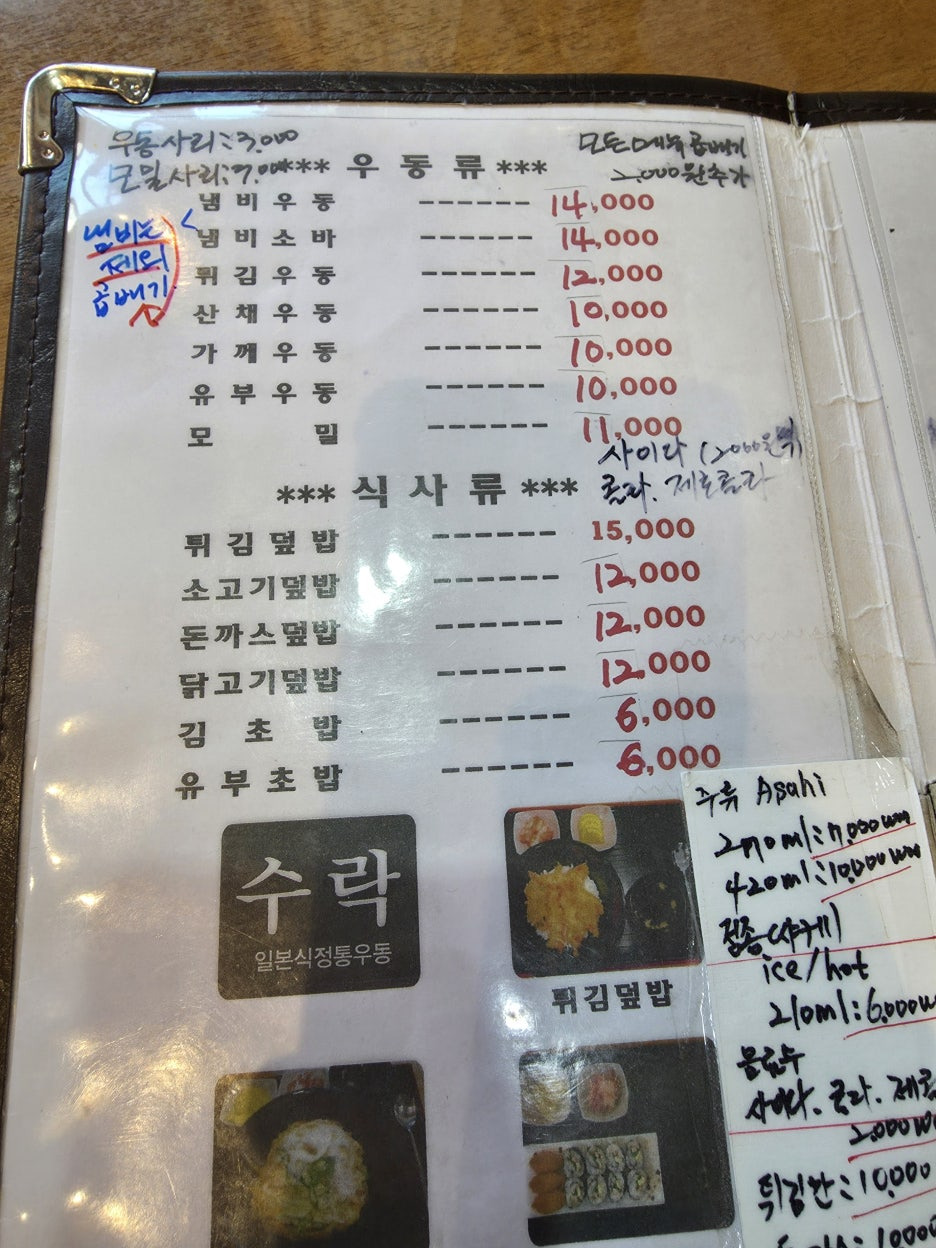 우동사리:3,000
모밀사리:7,00
모든메뉴곱배기
2,000원추가
*** 우동류 ***
냄비우동 ------ 14,000
냄비소바 ------ 14,000
튀김우동 ------ 12,000
산채우동 ------ 10,000
가께우동 ------ 10,000
유부우동 ------ 10,000
모밀 ------ 11,000
냄비는
제외
곱배기
사이다 (2000원
콜라. 제로콜라
*** 식사류 ***
튀김덮밥 ------ 15,000
소고기덮밥 ------ 12,000
돈까스덮밥 ------ 12,000
닭고기덮밥 ------ 12,000
김초밥 ------ 6,000
유부초밥 ------ 6,000
수락
일본식정통우동
튀김덮밥
주류 Asahi
270ml:7,000won
420ml:10,000won
정종(사케)
ice/hot
210ml:6,000w
음료수
사이다. 콜라. 제로
2,000wo
튀김만:10,000
10000